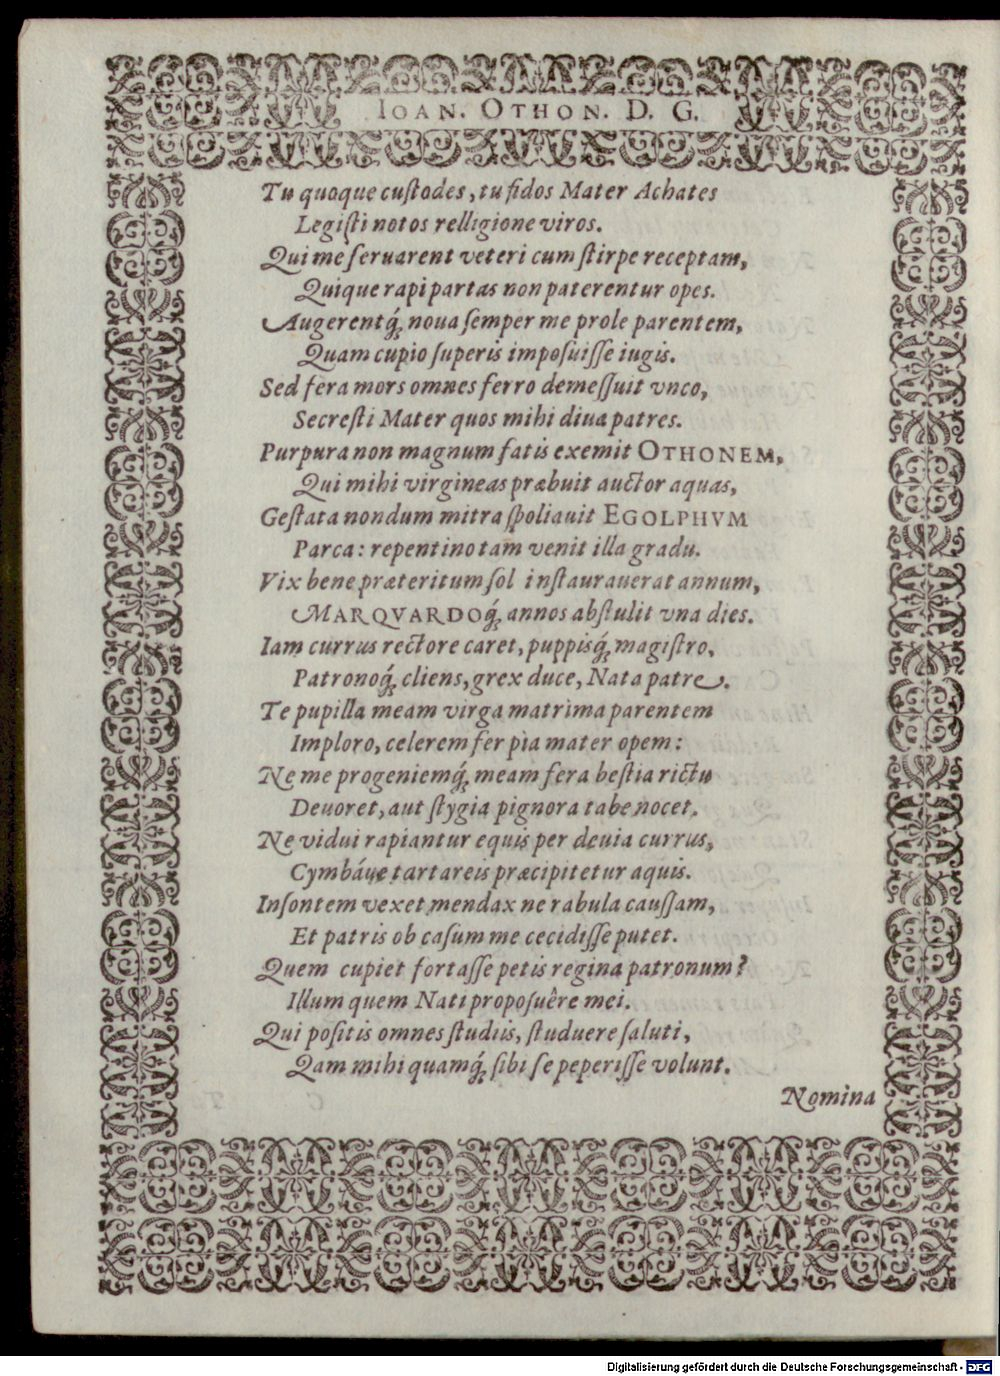 IOAN. OTHON. D. G.
Tu quoque custodes, tu fidos Mater Achates
Legiſti notos relligione viros.
Qui me ſeruarent veteri cum ſtirpe receptam,
Quique rapi partas non paterentur opes.
Augerentq́; noua ſemper me prole parentem,
Quam cupio ſuperis impoſuiſſe iugis.
Sed fera mors omnes ferro demeſſuit vnco,
Secreſti Mater quos mihi diua patres.
Purpura non magnum fatis exemit OTHONEM,
Qui mihi virgineas præbuit auctor aquas,
Geſtata nondum mitra ſpoliauit EGOLPHVM
Parca: repentino tam venit illa gradu.
Vix bene præteritum ſol inſtaurauerat annum,
MARQVARDOq́; annos abſtulit vna dies.
Iam currus rectore caret, puppisq́; magiſtro,
Patronoq́; cliens, grex duce, Nata patre.
Te pupilla meam virga matrima parentem
Imploro, celerem fer pia mater opem:
Ne me progeniemq́; meam fera beſtia rictu
Deuoret, aut ſtygia pignora tabe nocet.
Ne vidui rapiantur equis per deuia currus,
Cymbáue tartareis præcipitetur aquis.
Inſontem vexet mendax ne rabula cauſſam,
Et patris ob caſum me cecidiſſe putet.
Quem cupiet fortaſſe petis regina patronum?
Illum quem Nati propoſuêre mei.
Qui poſitis omnes ſtudiis, ſtuduere ſaluti,
Qam mihi quamq́; ſibi ſe peperiſſe volunt.
Nomina
Digitalisierung gefördert durch die Deutsche Forschungsgemeinschaft - DFG